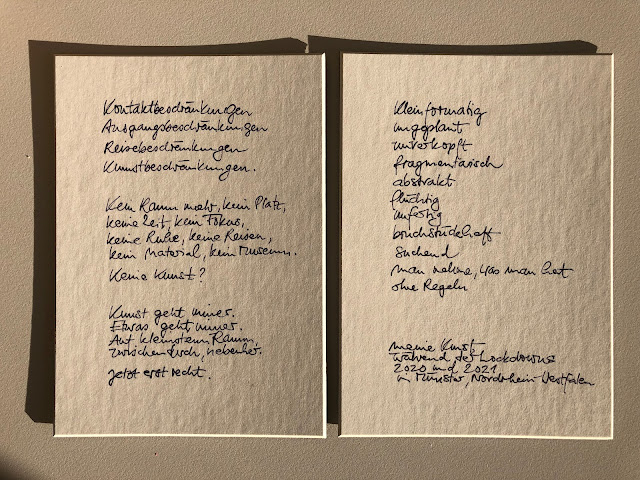 Kontaktbeschränkungen
Ausgangsbeschränkungen
Reisebeschränkungen
Kunstbeschränkungen.
Kein Raum mehr, kein Platz,
keine Zeit, kein Fokus,
keine Ruhe, keine Reisen,
kein Material, kein Museum.
Keine Kunst?
Kunst geht immer.
Etwas geht immer.
Auf kleinstem Raum,
zwischendurch, nebenher.
Jetzt erst recht.
Kleinformatig
ungeplant
unverkopft
fragmentarisch
abstrakt
flüchtig
unfertig
bruchstückhaft
suchend
man nehme, was man hat
ohne Regeln
meine Kunst
während der Lockdowns
2020 und 2021
in Münster, Nordrhein-Westfalen